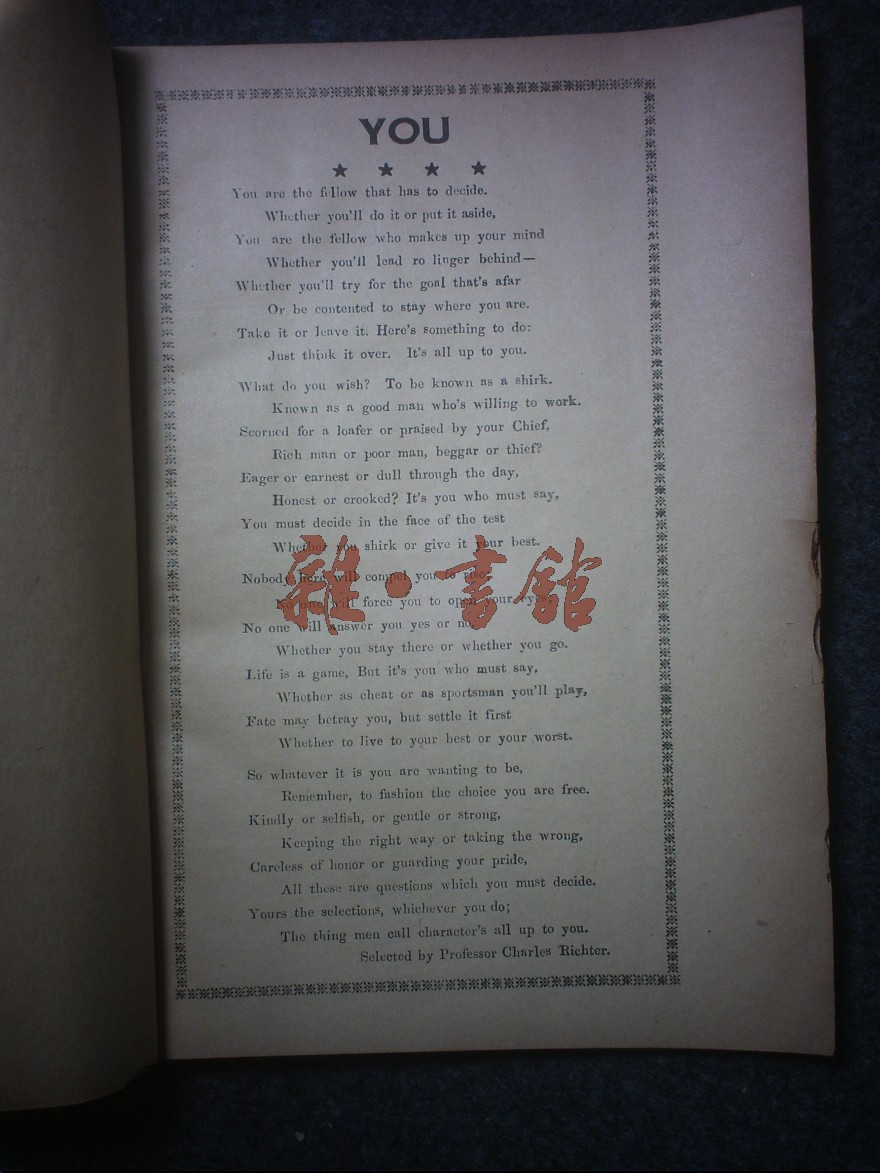 YOU
★ ★ ★ ★
You are the fellow that has to decide.
Whether you'll do it or put it aside,
You are the fellow who makes up your mind
Whether you'll lead ro linger behind—
Whether you'll try for the goal that's afar
Or be contented to stay where you are.
Take it or leave it. Here's something to do:
Just think it over. It's all up to you.
What do you wish? To be known as a shirk.
Known as a good man who's willing to work.
Scorned for a loafer or praised by your Chief,
Rich man or poor man, beggar or thief?
Eager or earnest or dull through the day,
Honest or crooked? It's you who must say,
You must decide in the face of the test
Whether you shirk or give it your best.
Nobody here will compel you to rise;
No one will force you to open your eyes;
No one will answer you yes or no,
Whether you stay there or whether you go.
Life is a game, But it's you who must say,
Whether as cheat or as sportsman you'll play,
Fate may betray you, but settle it first
Whether to live to your best or your worst.
So whatever it is you are wanting to be,
Remember, to fashion the choice you are free.
Kindly or selfish, or gentle or strong,
Keeping the right way or taking the wrong,
Careless of honor or guarding your pride,
All these are questions which you must decide.
Yours the selections, whichever you do;
The thing men call character's all up to you.
Selected by Professor Charles Richter.
雜·書館